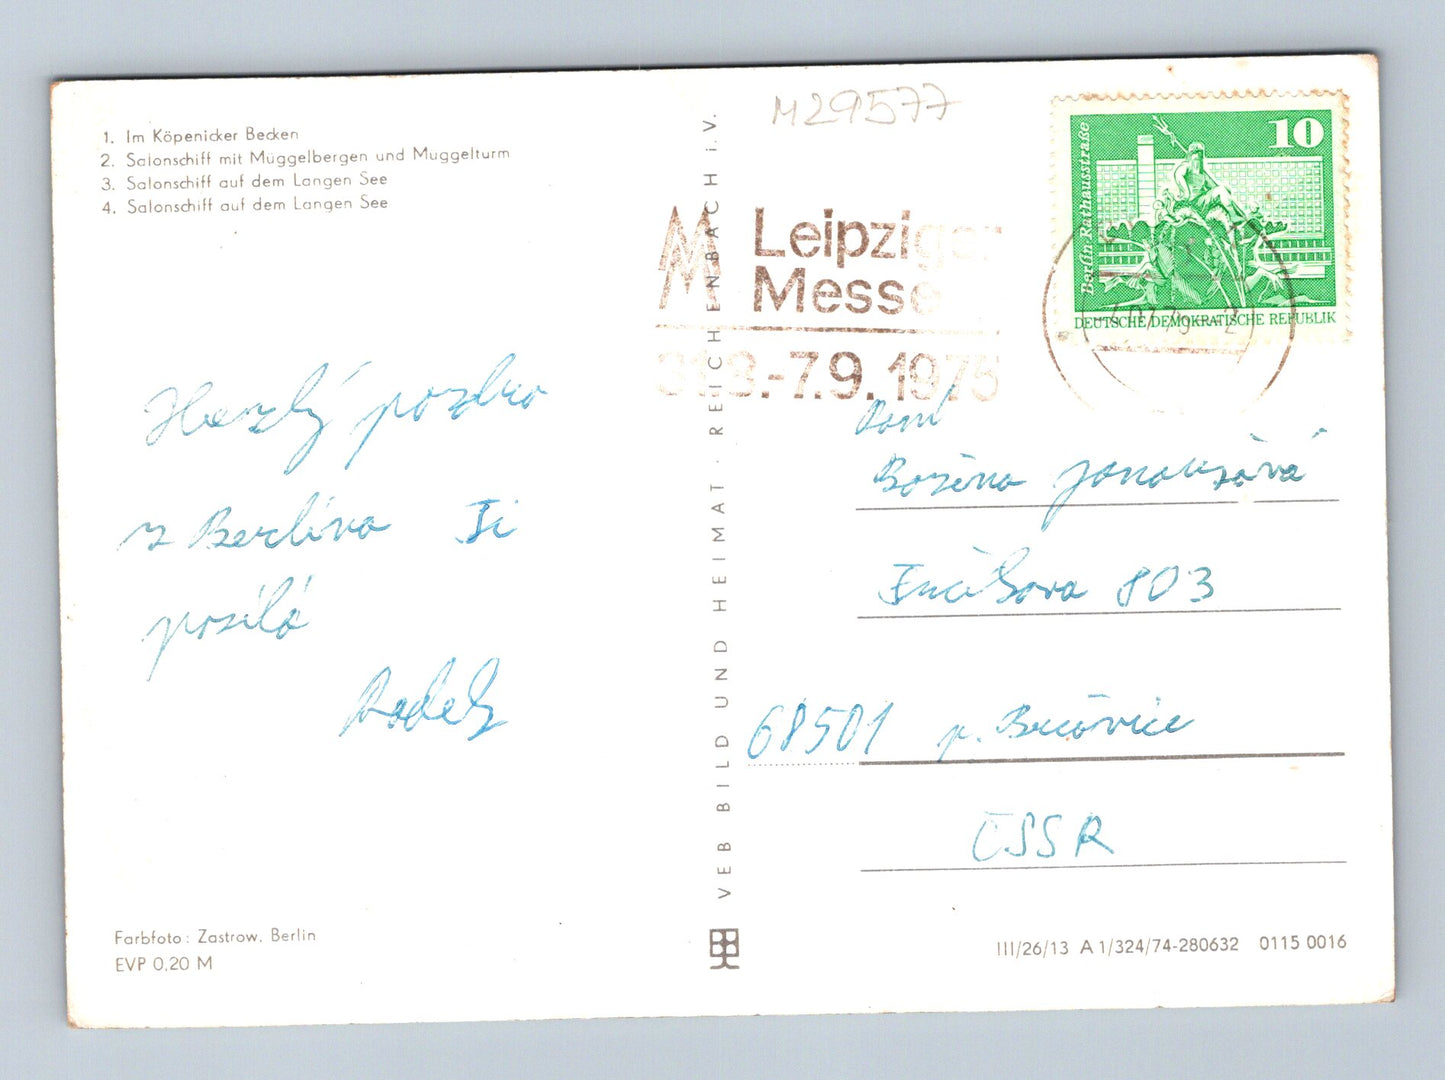 1. Im Köpenicker Becken
2. Salonschiff mit Müggelbergen und Müggelturm
3. Salonschiff auf dem Langen See
4. Salonschiff auf dem Langen See
Hezký pozdrav
z Berlína Ti
posílá
Radek
Farbfoto: Zastrow, Berlin
EVP 0,20 M
VEB BILD UND HEIMAT · REICHENBACH i. V.
M29577
Leipziger
Messe
31.8.-7.9.1975
10
Berlin-Rathausstraße
DEUTSCHE DEMOKRATISCHE REPUBLIK
Paní
Božena
803
68501 p. Bučovice
ČSSR
III/26/13 A 1/324/74-280632 0115 0016